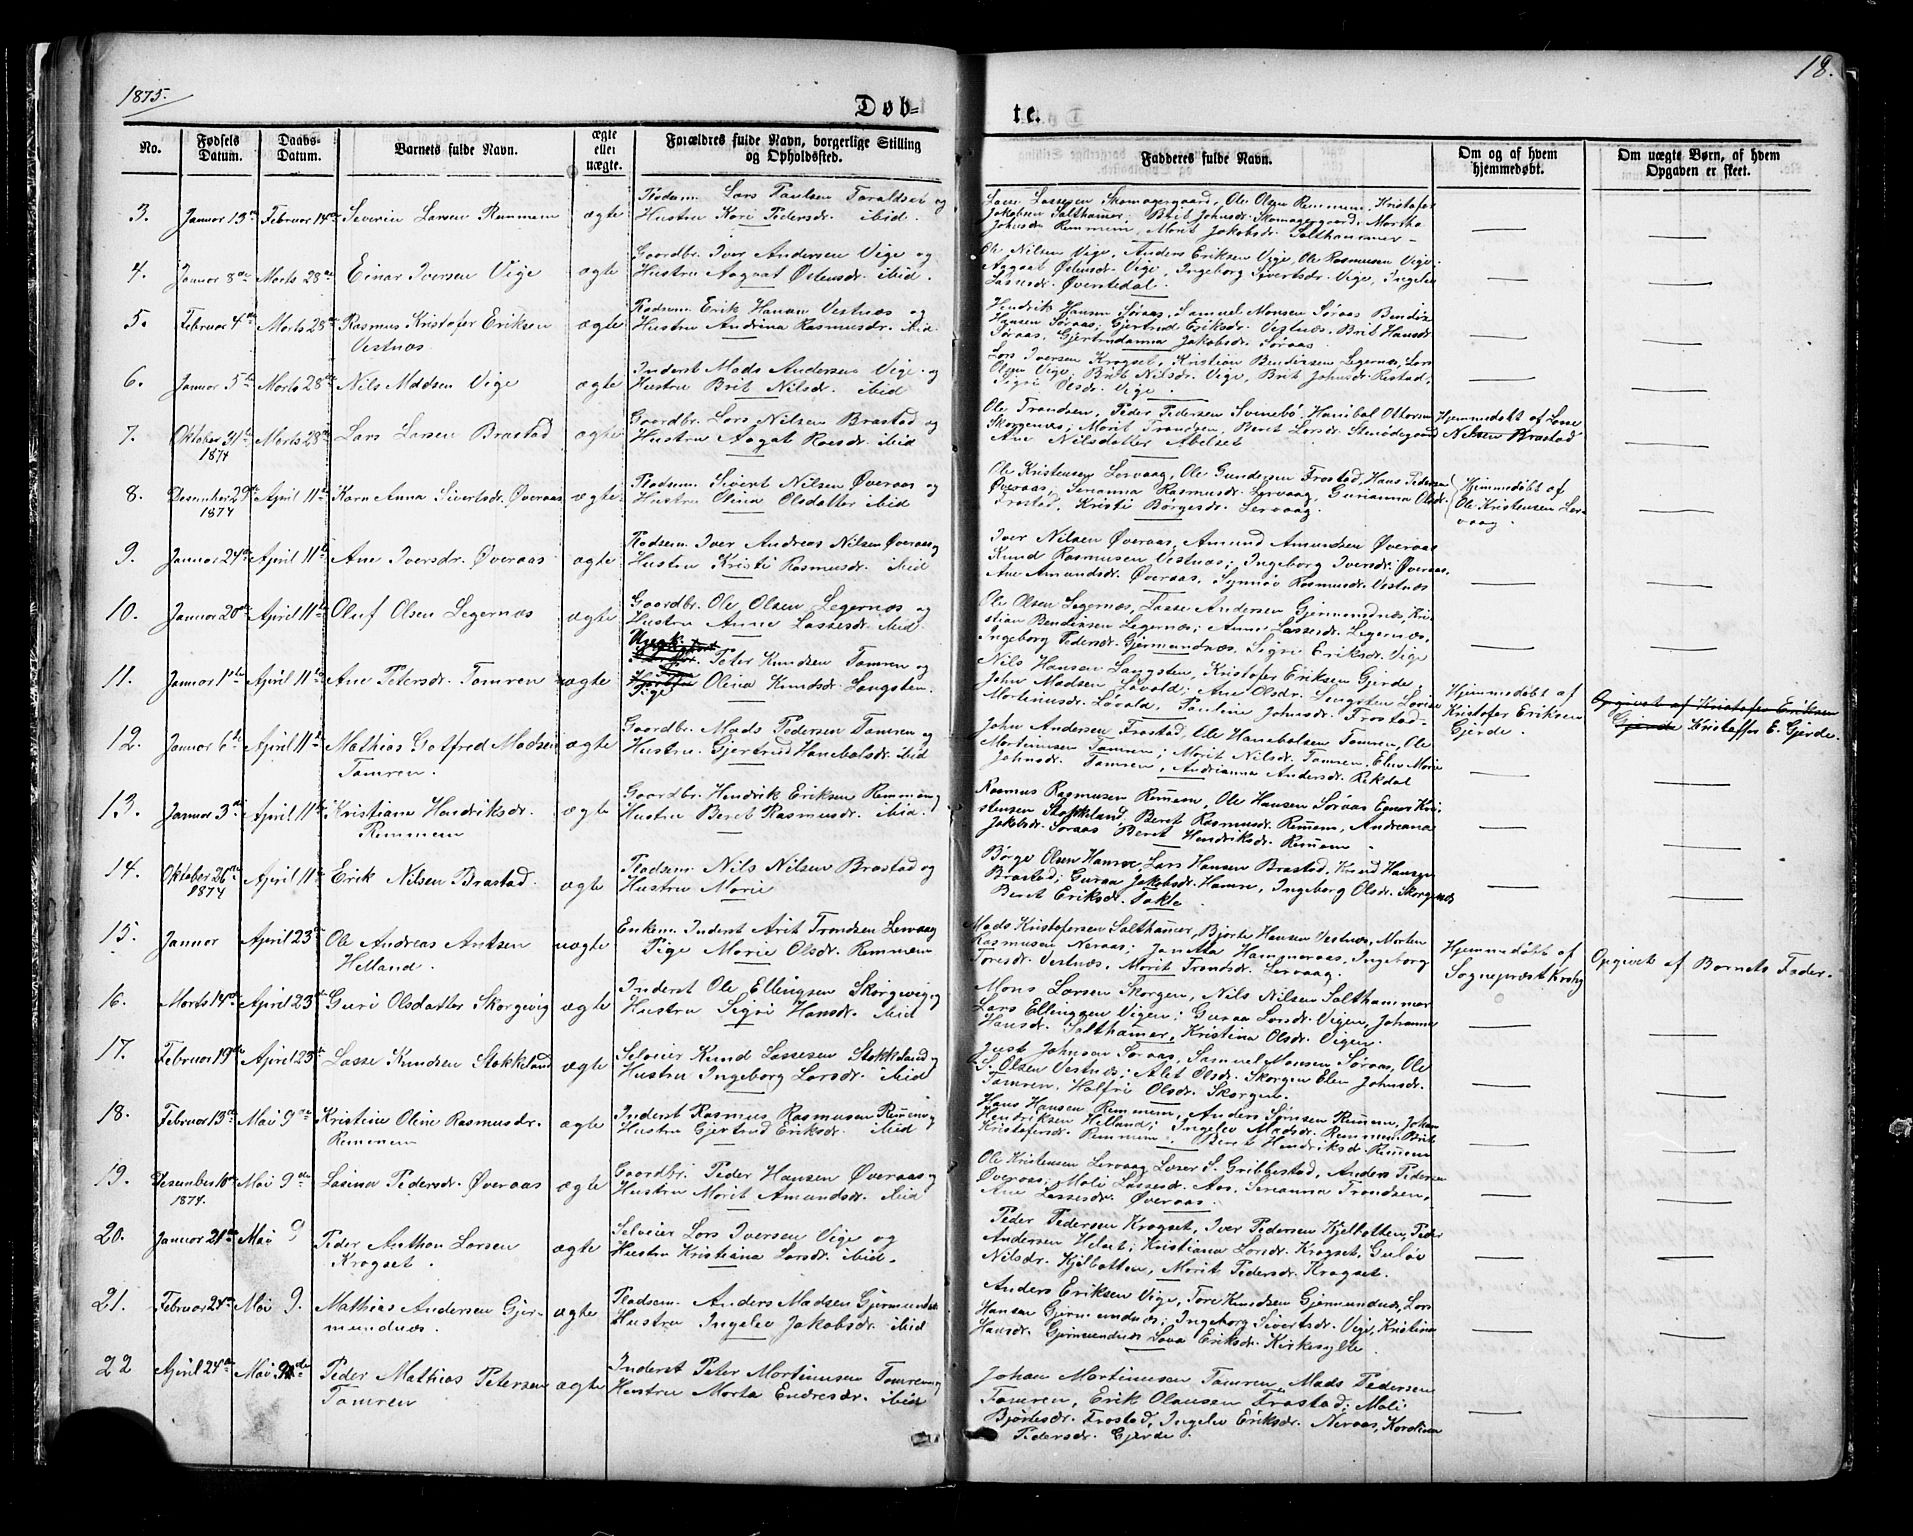 1875.
18.
Døb-
te.
No.
Fødsels Datum.
Daabs-Datum.
Barnets fulde Navn.
ægte eller uægte.
Forældres fulde Navn, borgerlige Stilling og Opholdssted.
Fadderes fulde Navn.
Om og af hvem hjemmedøbt.
Om uægte Børn, af hvem Opgaven er skeet.
3. Januar 13de Februar 14de Severin Larsen Remmem ægte
Pladsm. Lars Paulsen Taraldset og
Hustru Kari Pedersdr. ibid.
Lasse Lassesen Skomagergaard, Ole Olsen Remmem, Kristofer
Jakobsen Salthamer, Brit Johnsdr. Skomagergaard, Martha
Johnsdr. Remmem, Marit Jakobsdr. Salthammer
4. Januar 8de Marts 28de Einar Iversen Vige ægte
Gaardbr. Iver Andersen Vige og
Hustru Aagaat Østensdr. ibid.
Ole Nilsen Vige, Anders Eriksen Vige, Ole Rasmusen Vige
Aagaat Østensdr. Vige, Ingeborg Sivertsdr. Vige, Ingelev
Lassesdr. Øverstedal.
5. Februar 4de Marts 28de Rasmus Kristofer Eriksen
Vestnæs ægte
Pladsm. Erik Hansen Vestnæs og
Hustru Andrina Rasmusdr. ibid.
Hendrik Hansen Søraas, Samuel Monsen Søraas Bendix
Hansen Søraas; Gjertrud Eriksdr. Vestnæs, Brit Hansdr.
Søraas, Gjertrudanna Jakobsdr. Søraas
6. Januar 5te Marts 28de Nils Madsen Vige ægte
Inderst Mads Andersen Vige og
Hustru Brit Nilsdr. ibid
Lars Iversen Krogset, Kristian Bendixsen Legernæs, Lars
Olsen Vige; Brit Nilsdr. Vige, Brit Johnsdr. Restad,
Sigri Olsdr. Vige
7. Oktober 31te 1874 Marts 28de Lars Larsen Brastad ægte
Gaardbr. Lars Nilsen Brastad og
Hustru Aagat Roesdr. ibid
Ole Trondsen, Peder Pedersen Svinebø, Hanibal Ottersen
Skorgenes; Marit Trondsen, Beret Larsdr. Stenødegaard
Ane Nilsdatter Abelset
Hjemmedøbt af Lasse
Nilsen Brastad
8. Desember 29de 1874 April 11te Karn Anna Sivertsdr. Øveraas ægte
Pladsm. Sivert Nilsen Øveraas og
Hustru Olina Olsdatter ibid
Ole Kristensen Lervaag, Ole Gundersen Frostad, Hans Pedersen
Øveraas, Serianna Rasmusdr. Lervaag, Gurianna Olsdr.
Frostad, Kristi Børgesdr. Lervaag.
Hjemmedøbt af
Ole Kristensen Ler-
vaag.
9. Januar 24de April 11te Ane Iversdr. Øveraas ægte
Pladsem. Iver Andreas Nilsen Øveraas og
Hustru Kristi Rasmusdr. ibid
Iver Nilsen Øveraas, Amund Amundsen Øveraas
Knud Rasmusen Vestnæs; Ingeborg Iversdr. Øveraas,
Ane Amundsdr. Øveraas, Synnøv Rasmusdr. Vestnæs
10. Januar 20de April 11te Oluf Olsen Legernæs ægte
Gaardbr. Ole Olsen Legernæs og
Hustru Anne Lassesdr. ibid
Ole Olsen Legernæs, Lasse Andersen Gjermundnæs, Kri-
stian Bendixsen Legernæs; Anne Lassesdr. Legernæs,
Ingeborg Pedersdr. Gjermundnæs, Sigri Eriksdr. Vige
11. Januar 1ste April 11te Ane Petersdr. Tomren uægte
Peter Knudsen Tomren og
Pige Olina Knudsdr. Langsten.
Nils Hansen Langsten, Kristofer Eriksen Gjerde,
John Madsen Løvold; Ane Olsdr. Langsten Lovise
Martinusdr. Løvold, Pauline Johnsdr. Frostad.
Hjemmedøbt af
Kristofer Eriksen
Gjerde.
Opgivet af Kristofer Eriksen
Gjerde Kristoffer E. Gjerde.
12. Januar 6te April 11te Mathias Gotfred Madsen
Tomren. ægte
Gaardbr. Mads Pedersen Tomren og
Hustru. Gjertrud Hanebalsdr. ibid
John Andersen Frostad, Ole Hanebalsen Tomren, Ole
Martinusen Tomren; Marit Nilsdr. Tomren, Elen Marie
Johnsdr. Tomren, Andrianna Andersdr. Rekdal
13. Januar 3de April 11te Kristiane Hendriksdr.
Remmem ægte
Gaardbr. Hendrik Eriksen Remmem og
Hustru Beret Rasmusdr. ibid.
Rasmus Rasmusen Remem, Ole Hansen Søraas Egner Kri-
stensen Stokkeland, Beret Rasmusdr. Remem, Andreana
Jakobsdr. Søraas Beret Hendriksdr. Remem
14. Oktober 26de 1874 April 11te Erik Nilsen Brastad. ægte
Pladsem. Nils Nilsen Brastad og
Hustru Marie
Børge Olsen Hamre, Lars Hansen Brastad, Knud Hansen
Brastad; Guraa Jakobsdr. Hamre, Ingeborg Olsdr. Skorgenes
Beret Eriksdr. Vakle
15. Januar April 23de Ole Andreas Antsen
Helland. uægte
Enkem. Inderst Arit Trondsen Lervaag
Pige Marie Olsdr. Remmem
Mads Kristofersen Salthamer, Bjørte Hansen Vestnæs, Morten
Rasmusen Neraas; Janetta Hammeraas, Ingeborg
Toresdr. Vestnæs, Marit Trondsdr. Lervaag.
Hjemmedøbt af
Sognepræst Krohg
Opgivet af Barnets Fader.
16. Marts 14de April 23de Guri Olsdatter Skorgevig ægte
Inderst Ole Ellingsen Skorgevig og
Hustru Sigri Hansdr. ibid
Mons Larsen Skorgen, Nils Nilsen Salthammer
Lars Ellingsen Vigen; Guraa Larsdr. Vigen, Johanna
Hansdr. Salthamer, Kristina Olsdr. Vigen.
17. Februar 19de April 23de Lasse Knudsen Stokkeland ægte
Selveier Knud Lassesen Stokkeland og
Hustru Ingeborg Larsdr. ibid
Just Johnsen Søraas, Samuel Monsen Søraas, Ole
S. Olsen Vestnæs; Alet Olsdr. Skorgen Elen Johnsdr.
Tomren, Halfri Olsdr. Skorgen.
18. Februar 13de Mai 9de Kristine Oline Rasmusdr.
Remmem ægte
Inderst Rasmus Rasmusen Remem og
Hustru Gjertrud Eriksdr. ibid
Hans Hansen Remmem, Anders Sørnsen Remem, Johan
Hendriksen Helland; Ingelev Madsdr. Remmem. Brit
Kristofersdr. Remmem, Beret Hendriksdr. Remem
19. Desember 10de 1874. Mai 9de Lasina Pedersdr. Øveraas ægte
Gaardbr. Peder Hansen Øveraas og
Hustru Marit Amundsdr. ibid
Ole Kristensen Lervaag Laser S. Gribbestad, Anders Pedersen
Øveraas; Mali Lassesdr. Aas, Serianna Trondsen,
Ane Lassesdr. Øveraas.
20. Januar 21de Mai 9 Peder Anthon Larsen
Krogset. ægte
Selveier Lars Iversen Vige og
Hustru Kristiana Larsdr. ibid.
Peder Pedersen Krogset, Iver Pedersen Kjelbotten, Peder
Andersen Helset; Kristiana Larsdr. Krogset, Guløv
Nilsdr. Kjelbotten, Marit Pedersdr. Krogset.
21. Februar 24de Mai 9. Mathias Andersen Gjer-
mundnæs. ægte
Pladsem. Anders Madsen Gjermundnæs
Hustru Ingelev Jakobsdr. ibid
Anders Eriksen Vige, Tore Knudsen Gjermundnæs, Lars
Hansen Gjermundnæs; Ingeborg Sivertsdr. Vige, Kristina
Hansdr. Gjermundnæs Lova Eriksdr. Kirkesylte.
22 April 24de Mai 9de Peder Mathias Petersen
Tomren ægte
Inderst Peter Martinusen Tomren og
Hustru Marta Endresdr. ibid
Johan Martinusen Tomren, Mads Pedersen
Tomren, Erik Olausen Frostad; Mali
Bjørtesdr. Frostad, Ingelev Eriksdr. Neraas, Karolina
Pedersdr. Gjerde.